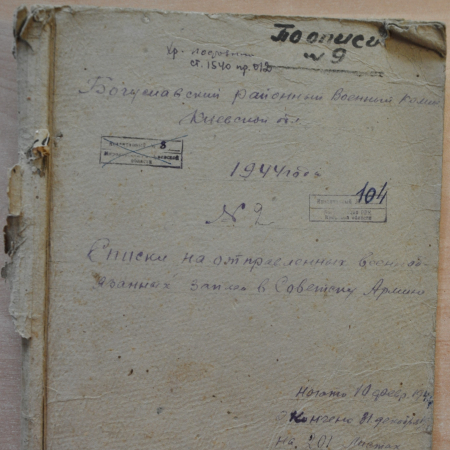 По описи
№ 9
хр. постоянн
ст. 1540 пр.
Богуславский районный Военный Коми
Киевской обл
8
1944 год
104
№ 2
Списки на отправленных военно
язанных запаса в Советскую Армию
Начато 10 февр.
Кончено 31 декабря
На 201 листах